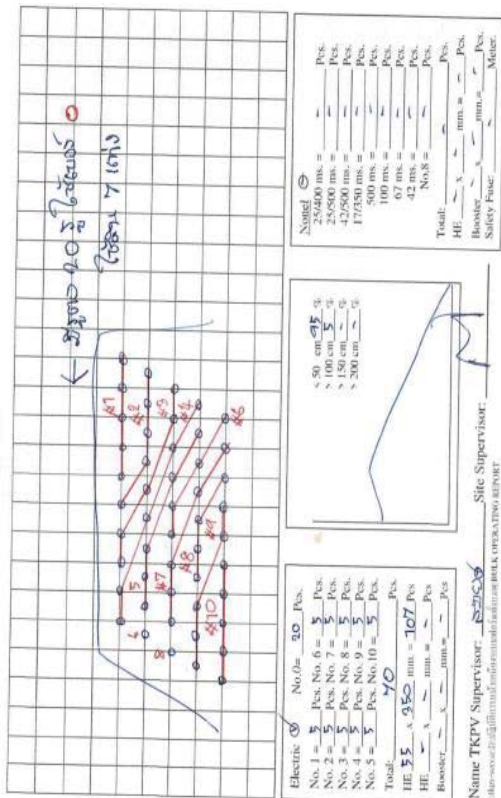 #1
#2
#3
#4
#6
5
#7
#8
#9
6
8
#10
Electric No.0= 20 Pcs.
No. 1 = 5 Pcs. No. 6 = 5 Pcs.
No. 2 = 5 Pcs. No. 7 = 5 Pcs.
No. 3 = 5 Pcs. No. 8 = 5 Pcs.
No. 4 = 5 Pcs. No. 9 = 5 Pcs.
No. 5 = 5 Pcs. No. 10 = 5 Pcs.
Total: 70
HE 55 x 350 mm. = 107 Pcs
HE - x - mm. = - Pcs
Booster - x - mm.= - Pcs
< 50 cm 95 %
> 100 cm 5 %
> 150 cm - %
> 200 cm - %
Nonel
25/400 ms. = - Pcs.
25/500 ms. = - Pcs.
42/500 ms. = - Pcs.
17/350 ms. = - Pcs.
500 ms. = - Pcs.
100 ms. = - Pcs.
67 ms. = - Pcs.
42 ms. = - Pcs.
No.8 = - Pcs.
Total: - Pcs.
HE - x - mm. = - Pcs.
Booster - x - mm.= - Pcs.
Safety Fuse: Meter.
Name TKPV Supervisor: Site Supervisor:
BULK OPERATING REPORT